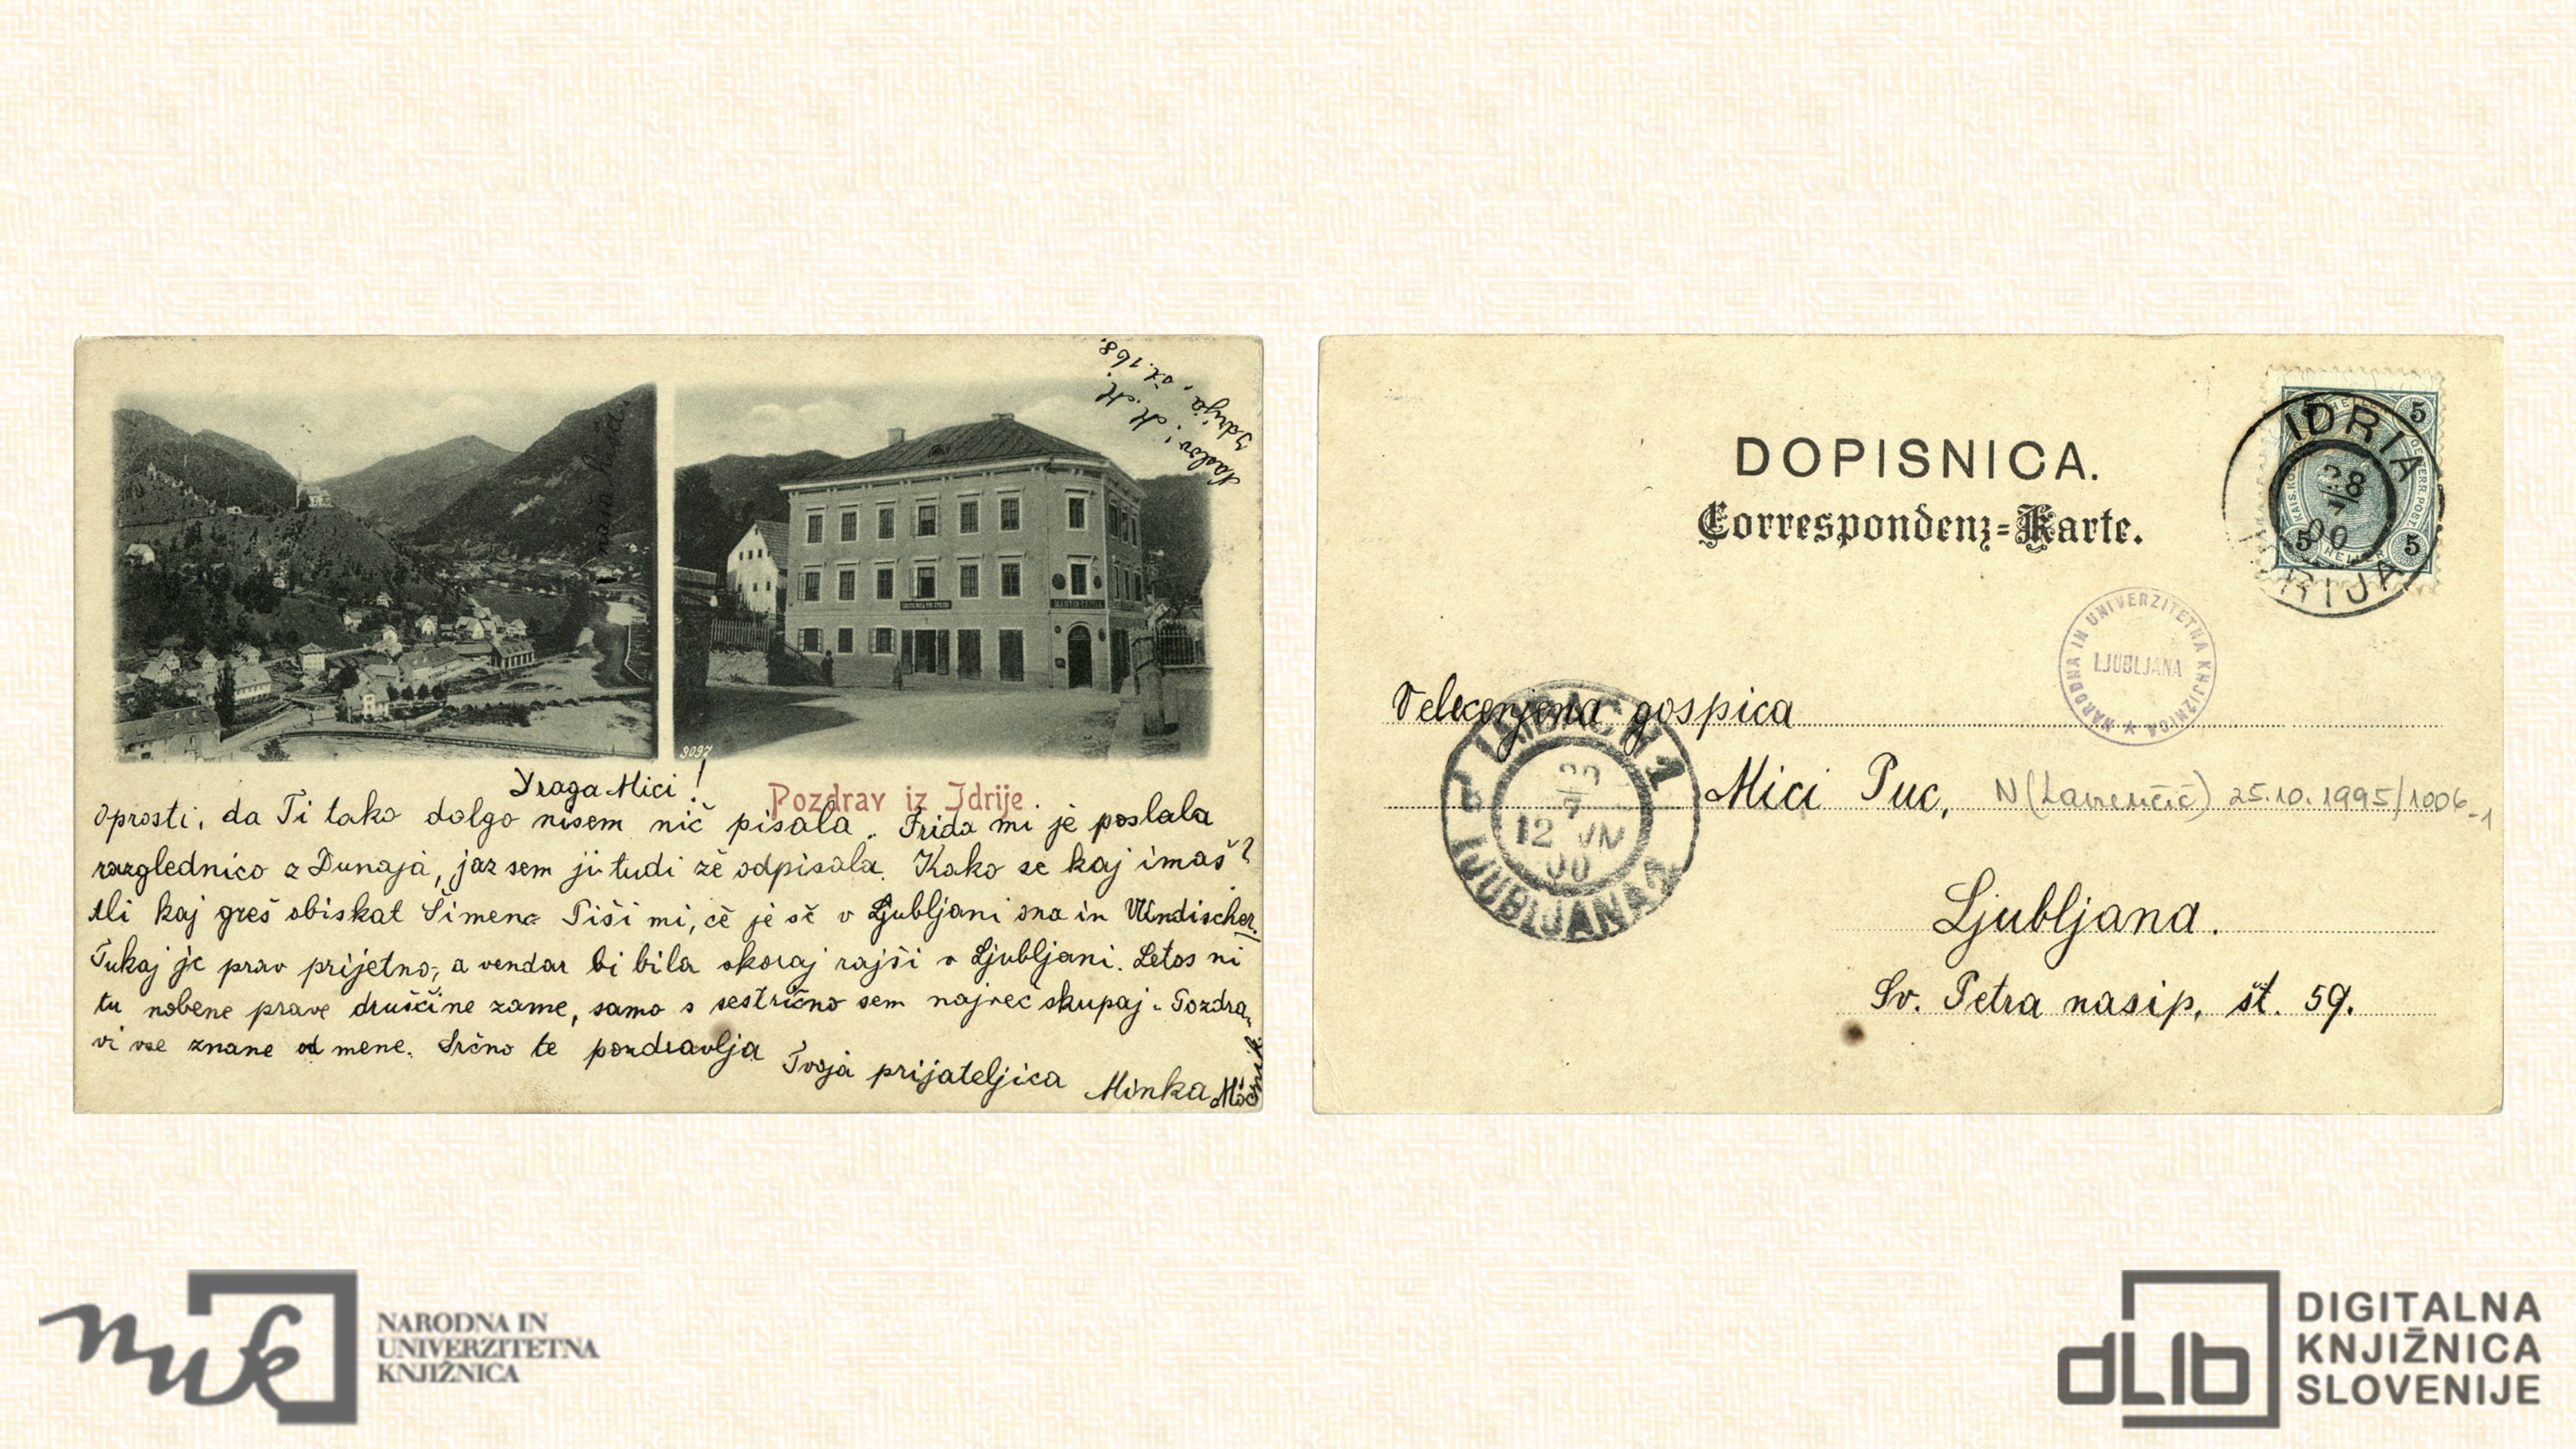 Naslov: M. M.
Idrija, št. 168.
naša hiša
GOSTILNICA PRI
9097
Pozdrav iz Idrije
Draga Mici!
Oprosti, da Ti tako dolgo nisem nič pisala. Frida mi je poslala
razglednico z Dunaja, jaz sem ji tudi že odpisala. Kako se kaj imaš?
Ali kaj greš obiskat Šimenc Piši mi, če je še v Ljubljani ona in Windischer.
Tukaj je prav prijetno, a vendar bi bila skoraj rajši v Ljubljani. Letos ni
tu nobene prave druščine zame, samo s sestrično sem največ skupaj. Pozdra-
vi vse znane od mene. Srčno te pozdravlja
Tvoja prijateljica Minka
DOPISNICA.
Correspondenz-Karte.
IDRIA
28
7
00
IDRIJA
5 5 5
NARODNA IN UNIVERZITETNA KNJIŽNICA
LJUBLJANA
LAIBACH 1
7
12 VN
00
LJUBLJANA
Velecenjena gospica
Mici Puc,
N (Lavrenčič) 25.10.1995/1006-1
Ljubljana.
Sv. Petra nasip, št. 59.
nuk
NARODNA IN
UNIVERZITETNA
KNJIŽNICA
dLIb
DIGITALNA
KNJIŽNICA
SLOVENIJE